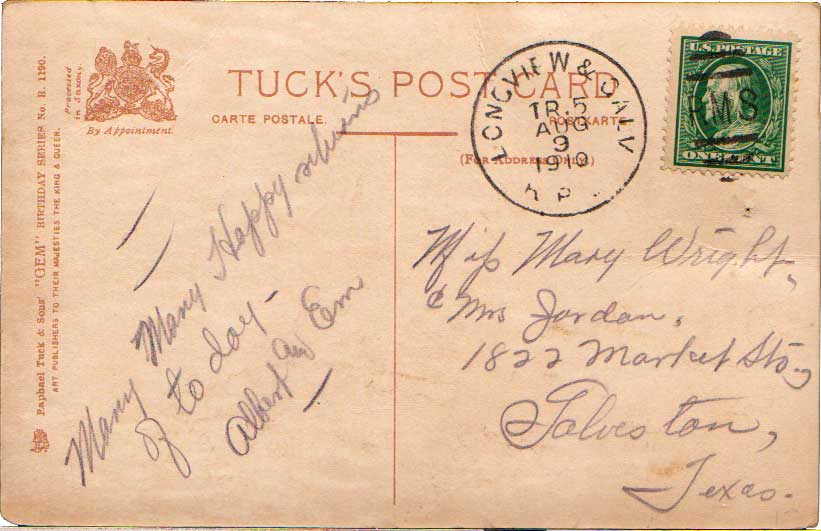 TUCK'S POST CARD
CARTE POSTALE.
POSTKARTE
(FOR ADDRESS ONLY.)
Processed
in Saxony.
By Appointment.
Raphael Tuck & Sons' "GEM" BIRTHDAY SERIES No. R. 1190.
ART PUBLISHERS TO THEIR MAJESTIES THE KING & QUEEN.
LONGVIEW & GALV
TR. 5
AUG
9
1910
R P
U.S. POSTAGE
RMS
ONE CENT
Many Many Happy returns
of to day -
Albert and Em
Miss Mary Wright,
c/o Mrs Jordan,
1822 Market St.,
Galveston,
Texas.